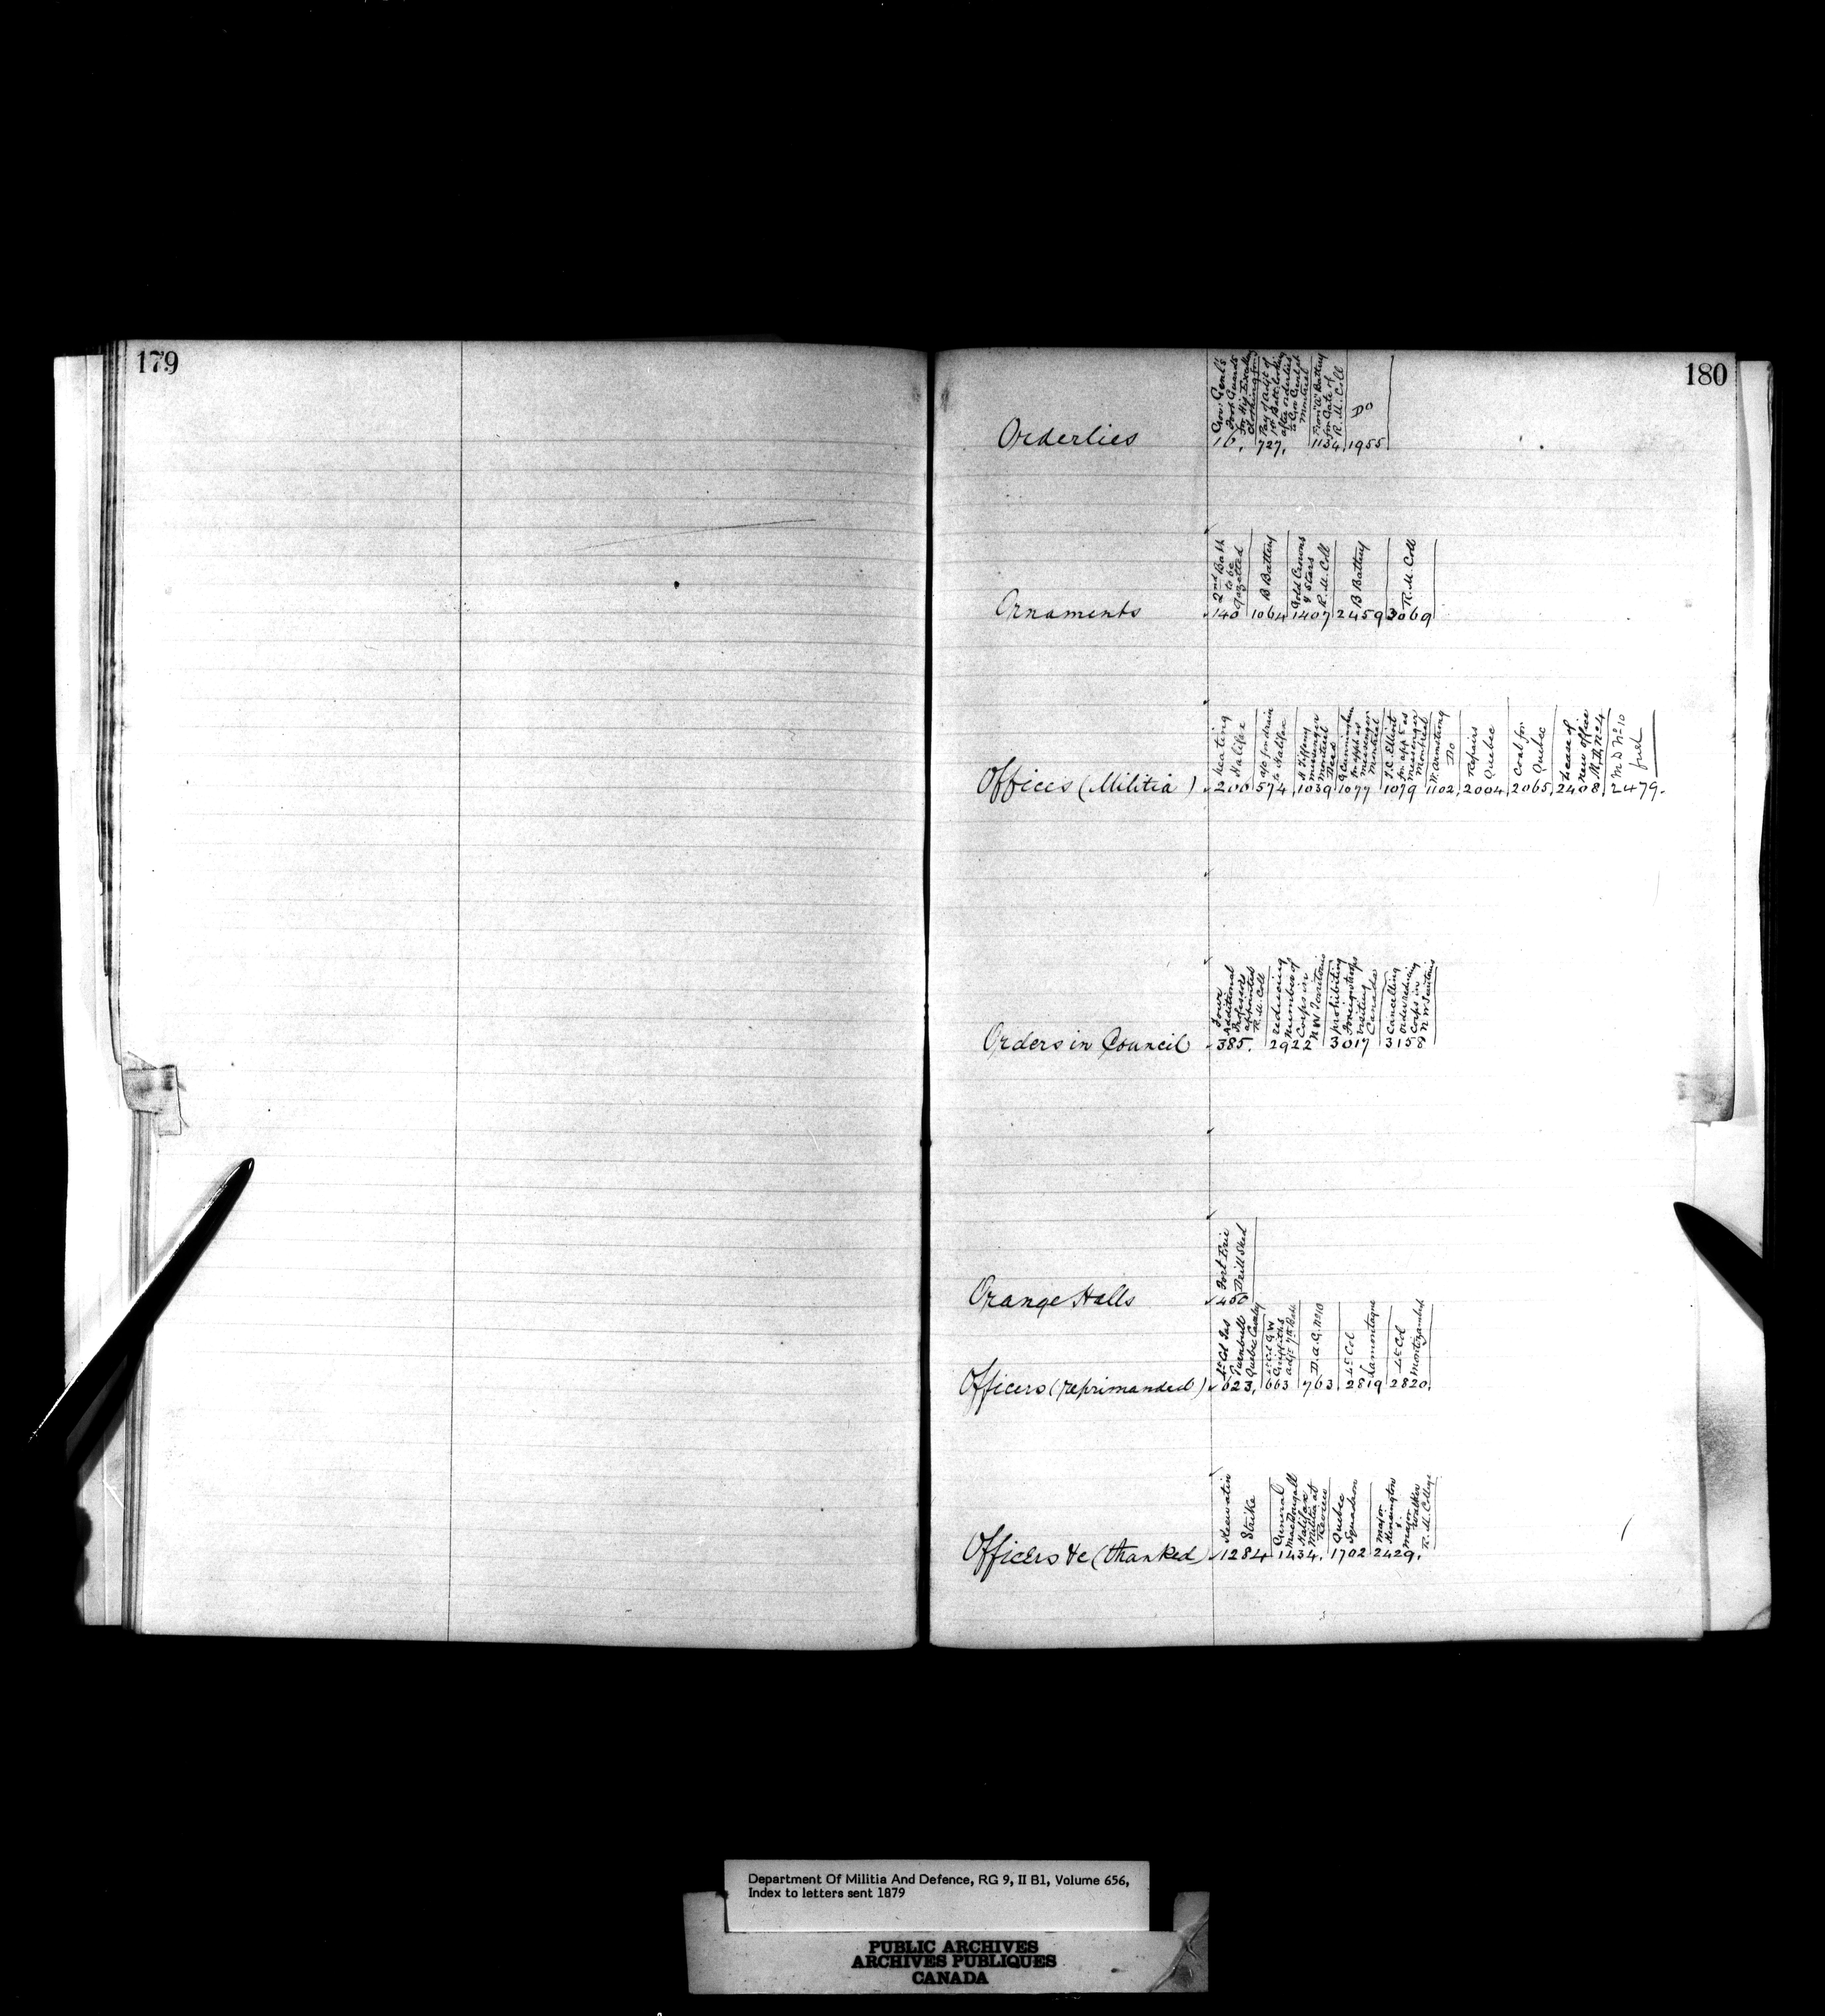 179
180
Orderlies
Gov. Genl's
Foot Guards
16.
Pay of
after orderlies
Montreal
727.
From "A" Battery
for Gate of
R. M. Coll
1134.
Do
1955
Ornaments
2nd Batt
to be
gazetted
140
B Battery
1064
Gold Crowns
& Stars
R. M. Coll
1407
B Battery
2459
R. M. Coll
3069
Offices (Militia)
heating
Halifax
200
a/c for drain
to Halifax
574
messenger
Montreal
Dead
1039
G Cunningham
for appt as
messenger
Montreal
1077
J. C. Elliott
for appt as
messenger
Montreal
1079
W. Armstrong
Do
1102.
Repairs
Quebec
2004.
Coal for
Quebec
2065.
Lease of
new office
M. D. No 4
2408.
M D No 10
fuel
2479.
Orders in Council
Four
Additional
Professors
appointed
R. M. Coll
385.
reducing
Number of
Corps in
N W Territories
2922
prohibiting
Foreign troops
visiting
Canada
3017
Cancelling
order reducing
Corps in
N W Territories
3158
Orange Halls
Fort Erie
Drill Shed
450
Officers (reprimanded)
Lt Col Jas
Turnbull
Quebec Cavalry
623.
Lt Col G W
Griffiths
663
D. A. G. No 10
763.
Lt Col
Lamontagne
2819
Lt Col
Montizambert
2820.
Officers &c (thanked)
Keewatin
Strike
1284
General
MacDougall
Halifax
Militia at
Review
1434.
Quebec
Squadron
1702
Major
Kensington
&
Major
Walker
R. M. College
2429.
Department Of Militia And Defence, RG 9, II B1, Volume 656,
Index to letters sent 1879
PUBLIC ARCHIVES
ARCHIVES PUBLIQUES
CANADA